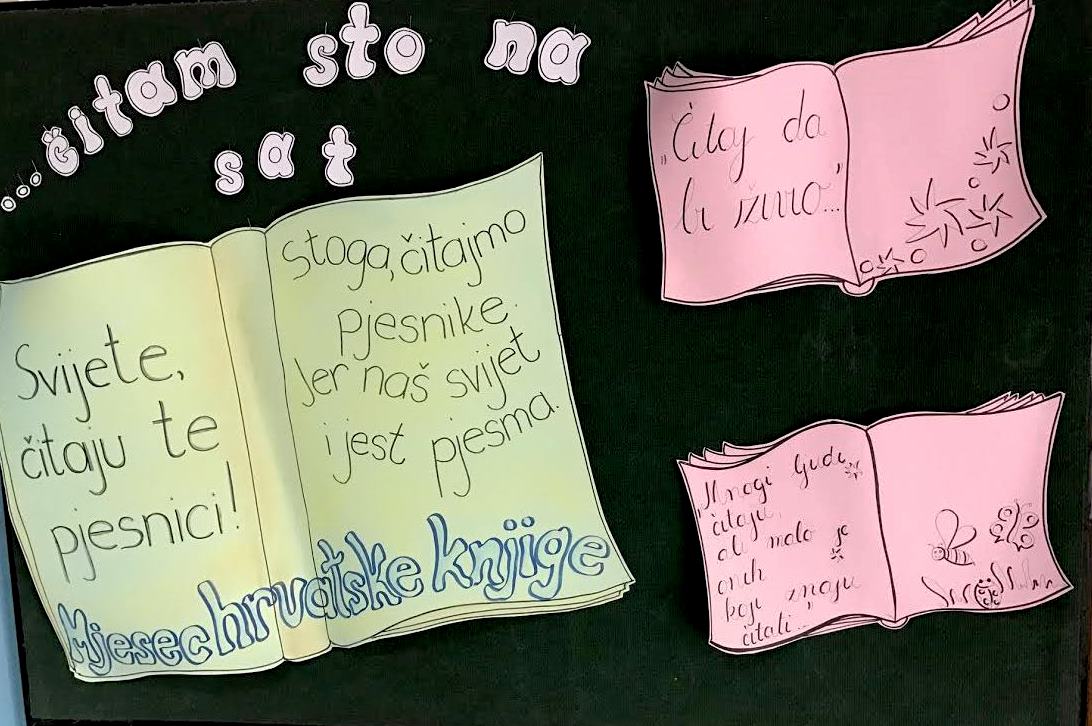 ...čitam sto na
sat
Svijete,
čitaju te
pjesnici!
Stoga, čitajmo
pjesnike.
Jer naš svijet
i jest pjesma.
Mjesec hrvatske knjige
"Čitaj da
bi živio..."
"Mnogi ljudi
čitaju,
ali malo je
onih
koji znaju
čitati..."